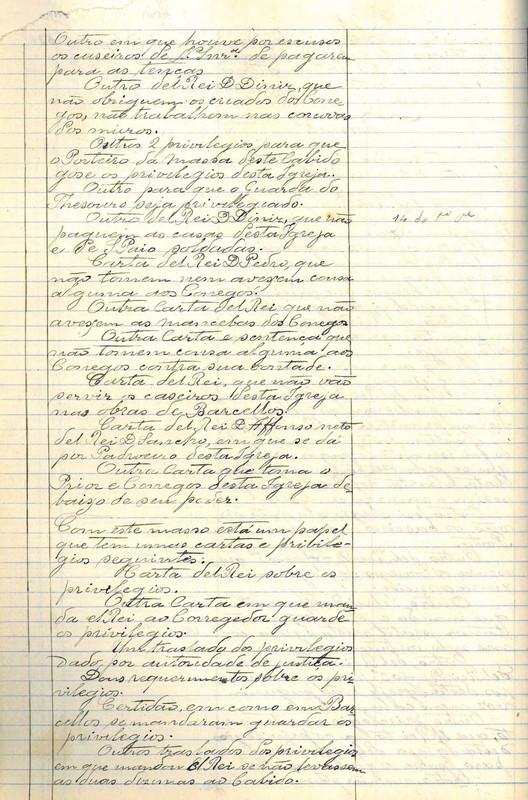 Outro em que houve por escusos
os caseiros de S. Inr.ª de pagarem
para as tenças
Outro del Rei D Diniz, que
não obriguem os creados dos Cone-
gos, não trabalhem nas corcovas
dos muros.
Outros 2 privilegios para que
o Porteiro da massa deste Cabido
gose os privilegios desta Igreja.
Outro para que o Guarda do
Thesouro seja privilegiado.
Outro de Rei D Diniz, que não
paguem as casas desta Igreja
e de S. Paio soldadas.
Carta del Rei D Pedro, que
não tomem nem avexem cousa
alguma aos Conegos.
Outra Carta del Rei que não
avexem as mancebas dos Conegos
Outra Carta e sentença que
não tomem cousa alguma aos
Conegos contra sua vontade.
Carta del Rei, que não vão
servir os caseiros desta Igreja
nas obras de Barcellos.
Carta del Rei D Affonso neto
del Rei D Sancho, em que se dá
por Padroeiro desta Igreja.
Outra Carta que toma o
Prior e Conegos desta Igreja de-
baixo de seu poder.
Com este masso está um papel
que tem umas cartas e pribile-
gios seguintes:
Carta del Rei sobre os
privilegios.
Outra Carta em que man-
da el Rei, ao Corregedor guarde
os privilegios.
Um traslado dos privilegios
dado por autoridade de justiça.
Dous requerimentos sobre os pri
vilegios.
Certidão, em como em Bar
cellos se mandaram guardar os
privilegios.
Outros traslados dos privilegios
em que mandou El Rei se não levassem
as duas dizimas ao Cabido.
14 de